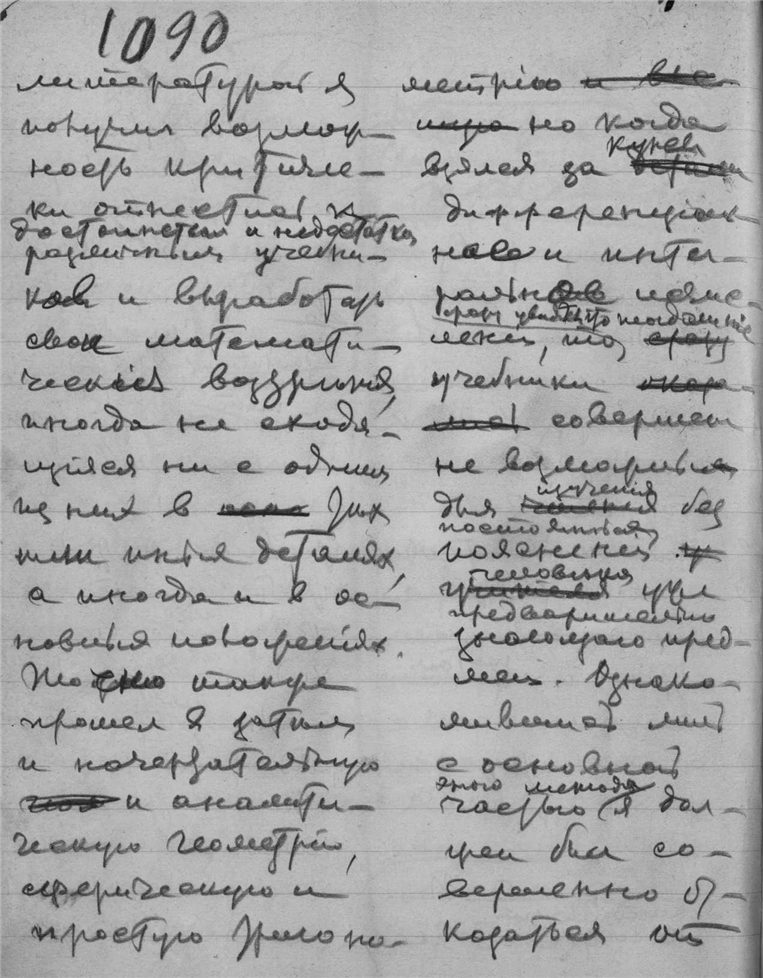 1090
литературой я
получил возмож-
ность критиче-
ки отнестись к
достоинствам и недостаткам
различных учебни-
ков и выработать
свои математи-
ческия воззрѣнія,
иногда не сходя-
щіяся ни с одним
из них в
или иных деталях,
а иногда и в ос-
новных положеніях.
Точно также
прошел я затѣм
и начертательную
и аналити-
ческую геометрію,
сферическую и
простую триго но-
метрію
но когда
взялся за
дифференціаль
наго и инте-
ральнаго исчис-
сразу увидѣл, что тогдашніе
ленія,
учебники
совершен
не возможны
изученія
для без
постоянных
пояснений
человѣка уже
предварительно
знающаго пред-
мет. Ознако-
мившись лишь
с основной
этого метода
частью я дол-
жен был со-
вершенно от-
казаться от